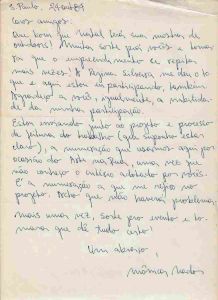 S. Paulo, 24 out 89
Caros amigos:
Que bom que Natal terá sua mostra de
outdoors! Muita sorte pra vocês e tomara
que o empreendimento se repita
mais vezes! A Regina Silveira me deu o to
que e aqui estou eu participando, também.
Agradeço a vocês, igualmente, a
da minha participação.
Estou enviando junto ao projeto o processo
de feitura do trabalho (que suponho estar
claro), a numeração que usamos aqui por
ocasião do Arte na Rua, uma vez que
não conheço o critério adotado por vocês.
É a numeração a que me refiro no
projeto. Acho que não haverá problema.
Mais uma vez, sorte pro evento e to
mara que dê tudo certo!
Um abraço,
Mônica Nador